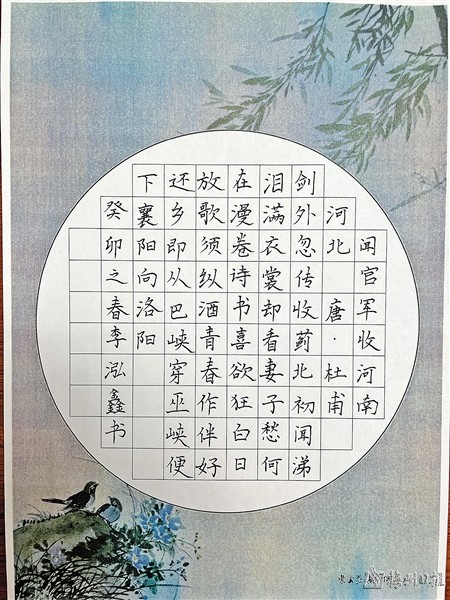 闻官军收河南
河北 唐·杜甫
剑外忽传收蓟北初闻涕
泪满衣裳却看妻子愁何
在漫卷诗书喜欲狂白日
放歌须纵酒青春作伴好
还乡即从巴峡穿巫峡便
下襄阳向洛阳
癸卯之春李泓鑫书
梅州日报